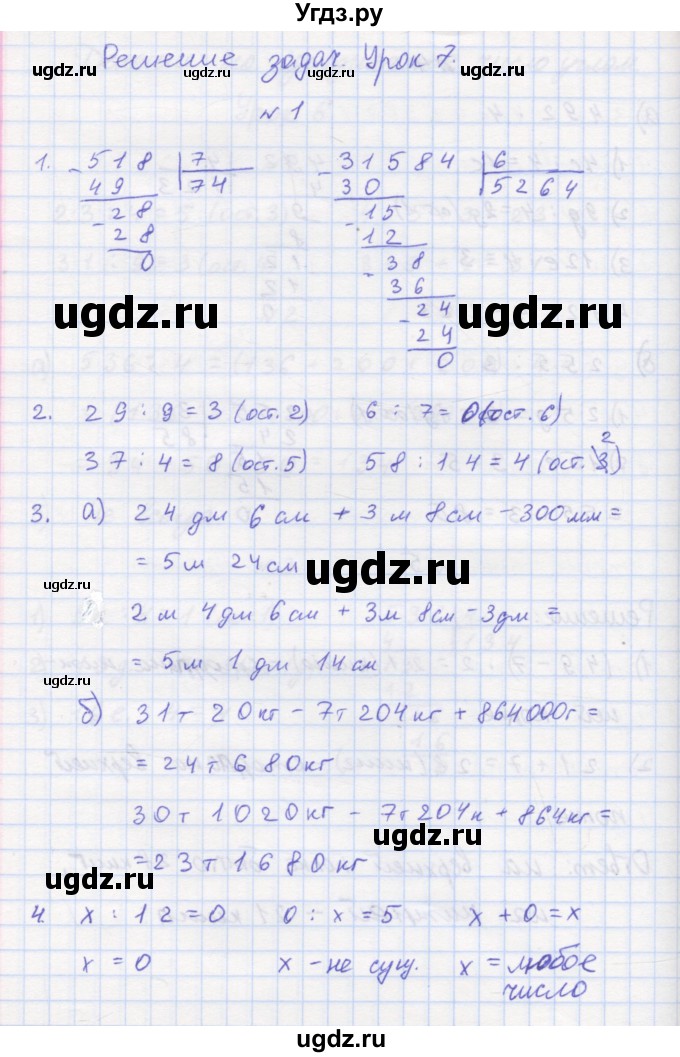 Угдз.ру
Решение задач. Урок 7.
ugdz.ru ugdz.ru ugdz.ru
№ 1
1. - 518 | 7 - 31584 | 6
49 74 30 5264
- 28 - 15
28 12
0 - 38
36
- 24
24
0
ugdz.ru ugdz.ru
2. 29 : 9 = 3 (ост. 2) 6 : 7 = 0 (ост. 6)
37 : 4 = 8 (ост. 5) 58 : 14 = 4 (ост. 2)
3. а) 24 дм 6 см + 3 м 8 см - 300 мм =
= 5 м 24 см
ugdz.ru ugdz.ru
2 м 4 дм 6 см + 3 м 8 см - 3 дм =
= 5 м 1 дм 14 см
ugdz.ru ugdz.ru
б) 31 т 20 кг - 7 т 204 кг + 864000 г =
= 24 т 680 кг
ugdz.ru
30 т 1020 кг - 7 т 204 к + 864 кг =
= 23 т 1680 кг
ugdz.ru ugdz.ru
4. x : 12 = 0 0 : x = 5 x + 0 = x
x = 0 x - не сущ. x = любое
число
ugdz.ru